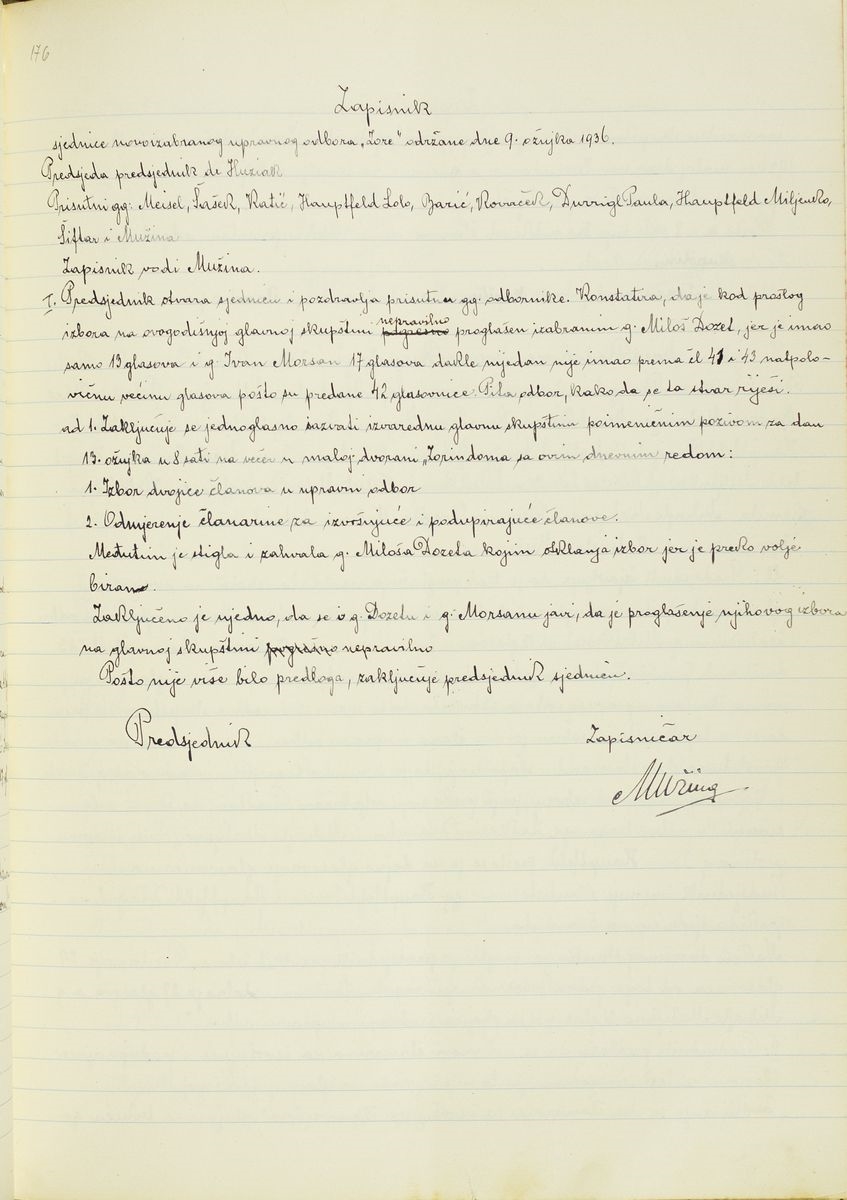 176
Zapisnik
sjednice novoizabranog upravnog odbora „Zore“ održane dne 9. ožujka 1936.
Predsjeda predsjednik dr Huziak
Prisutni gg: Meisel, Šašek, Katić, Hauptfeld Lolo, Barić, Kovaček, Durrigl Paula, Hauptfeld Miljenko,
Šiftar i Mužina
Zapisnik vodi Mužina.
I. Predsjednik otvara sjednicu i pozdravlja prisutne gg. odbornike. Konstatira, da je kod prošlog
izbora na ovogodišnjoj glavnoj skupštini nepravilno proglašen izabranim g. Miloš Dozet, jer je imao
samo 13 glasova i g. Ivan Morsan 17 glasova dakle nijedan nije imao prema čl 41 i 43 natpolo-
vičnu većinu glasova pošto su predane 42 glasovnice. Pita odbor, kako da se ta stvar riješi.
ad 1. Zaključuje se jednoglasno sazvati izvarednu glavnu skupštinu poimeničnim pozivom za dan
13. ožujka u 8 sati na večer u maloj dvorani „Zorin doma sa ovim dnevnim redom:
1. Izbor dvojice članova u upravni odbor
2. Odmjerenje članarine za izvršujuće i podupirajuće članove.
Međutim je stigla i zahvala g. Miloša Dozeta kojim otklanja izbor jer je preko volje
biran.
Zaključeno je ujedno, da se i g. Dozetu i g. Morsanu javi, da je proglašenje njihovog izbora
na glavnoj skupštini pogrešno nepravilno
Pošto nije više bilo predloga, zaključuje predsjednik sjednicu.
Predsjednik
Zapisničar
Mužina